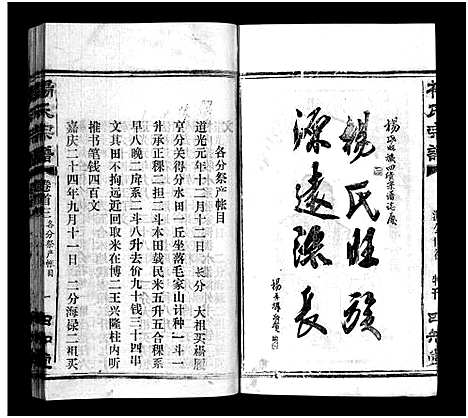 杨氏旺族
源远流长
杨氏宗谱
卷首三
各分祭产帐目
一
四知堂
各分祭产帐目
道光元年十二月十二日 长分 大祖买杨胭
享分关得分水田一丘坐落毛家山计种一斗一
升承正稞二担二斗本田载民米五升五合稞系
早八晚二原系二斗八升去价九十钱三十四串
文其田不拘远近回取米在博二王兴隆柱内听
推书笔钱四百文
嘉庆二十四年九月十一日 二分海禄二祖买
杨氏宗谱
四知堂